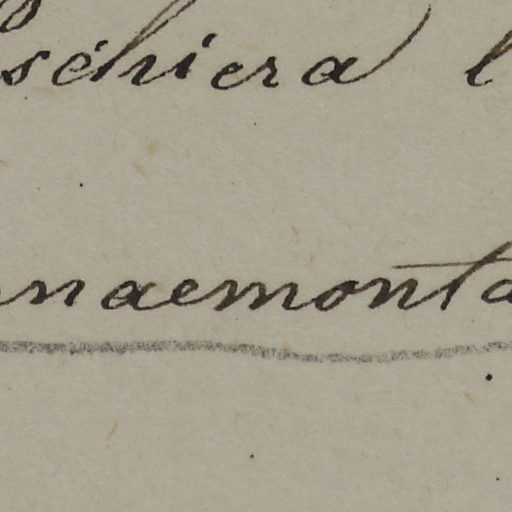 schiera l
naemonta